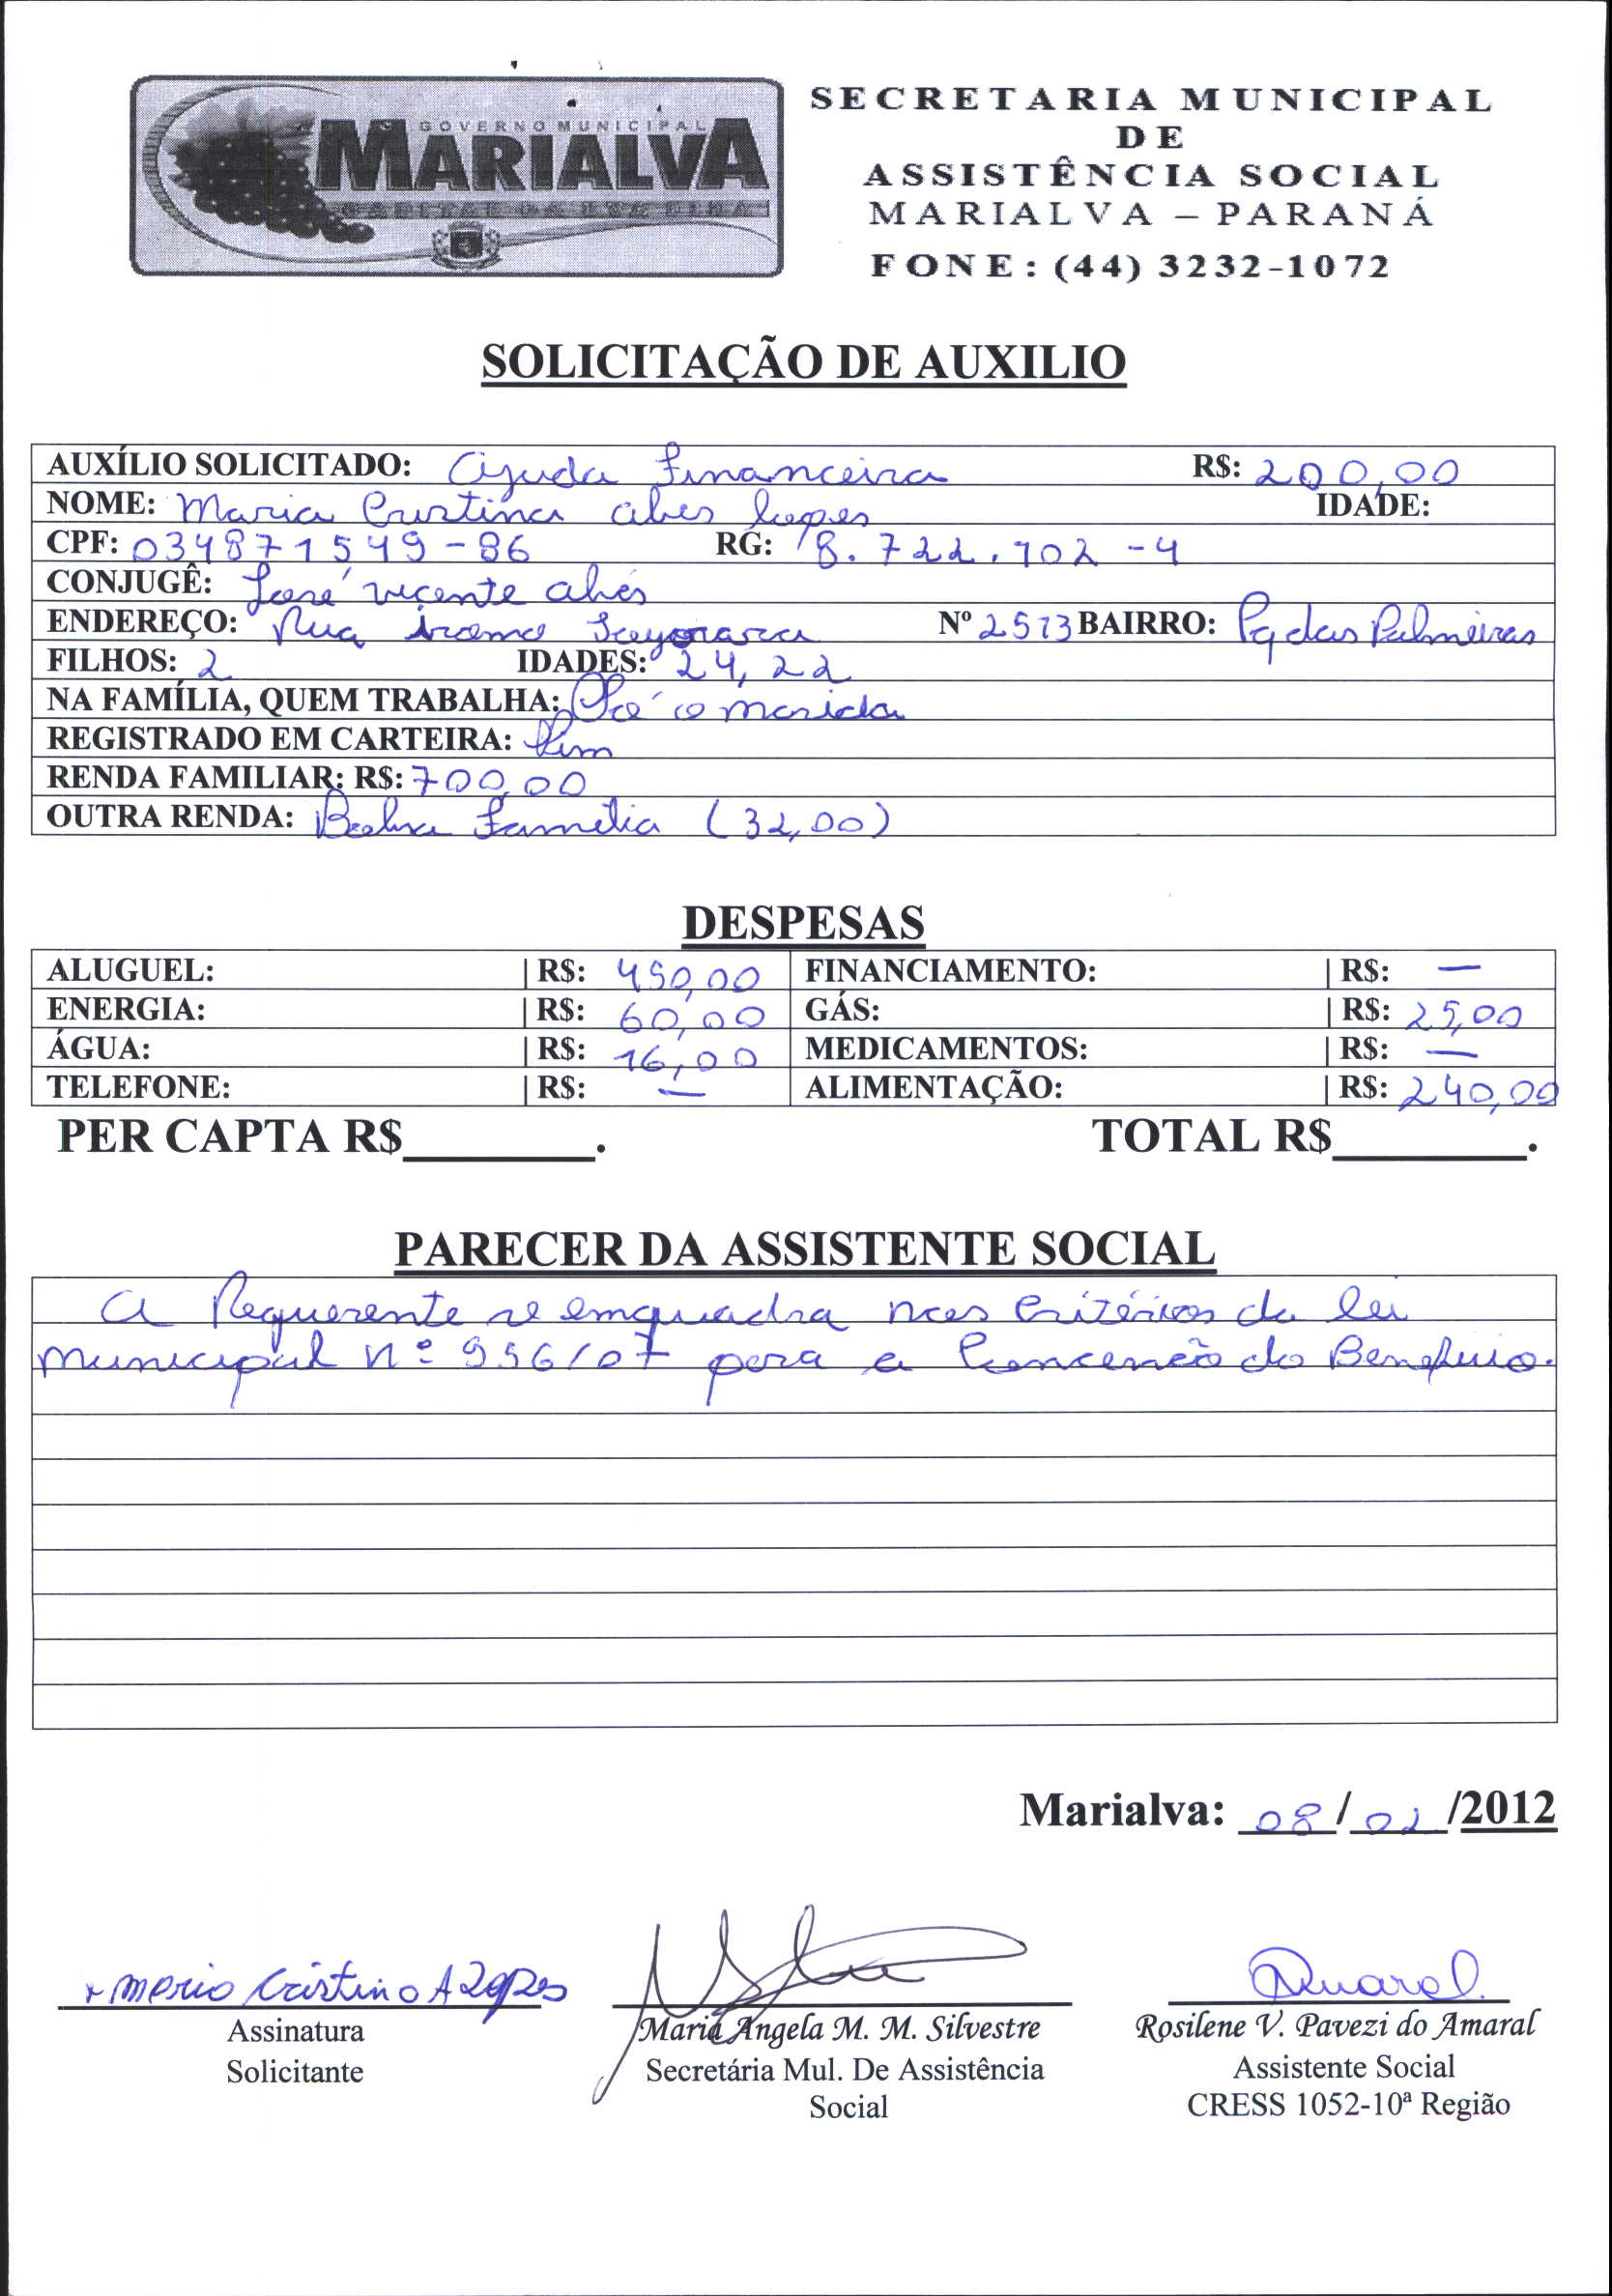 GOVERNO MUNICIPAL
MARIALVA
CAPITAL DA UVA FINA
SECRETARIA MUNICIPAL
DE
ASSISTÊNCIA SOCIAL
MARIALVA – PARANÁ
FONE: (44) 3232-1072
SOLICITAÇÃO DE AUXILIO
AUXÍLIO SOLICITADO: Ajuda Financeira R$: 200,00
NOME: Maria Cristina Alves Lopes IDADE:
CPF: 034871549-86 RG: 8.722.702-4
CONJUGÊ: José Vicente Alves
ENDEREÇO: Rua Nº 2513 BAIRRO: Pq das Palmeiras
FILHOS: 2 IDADES: 24, 22
NA FAMÍLIA, QUEM TRABALHA: Só o marido
REGISTRADO EM CARTEIRA: Sim
RENDA FAMILIAR: R$: 700,00
OUTRA RENDA: Bolsa Família (32,00)
DESPESAS
ALUGUEL: | R$: 450,00 FINANCIAMENTO: | R$: —
ENERGIA: | R$: 60,00 GÁS: | R$: 25,00
ÁGUA: | R$: 16,00 MEDICAMENTOS: | R$: —
TELEFONE: | R$: — ALIMENTAÇÃO: | R$: 240,00
PER CAPTA R$________. TOTAL R$________.
PARECER DA ASSISTENTE SOCIAL
A Requerente se enquadra nos Critérios da lei
municipal nº 956/07 para a Concessão do Benefício.
Marialva: 08/02/2012
x Maria Cristina A Lopes Amaral
Assinatura Maria Angela M. M. Silvestre Rosilene V. Pavezi do Amaral
Solicitante Secretária Mul. De Assistência Assistente Social
Social CRESS 1052-10ª Região